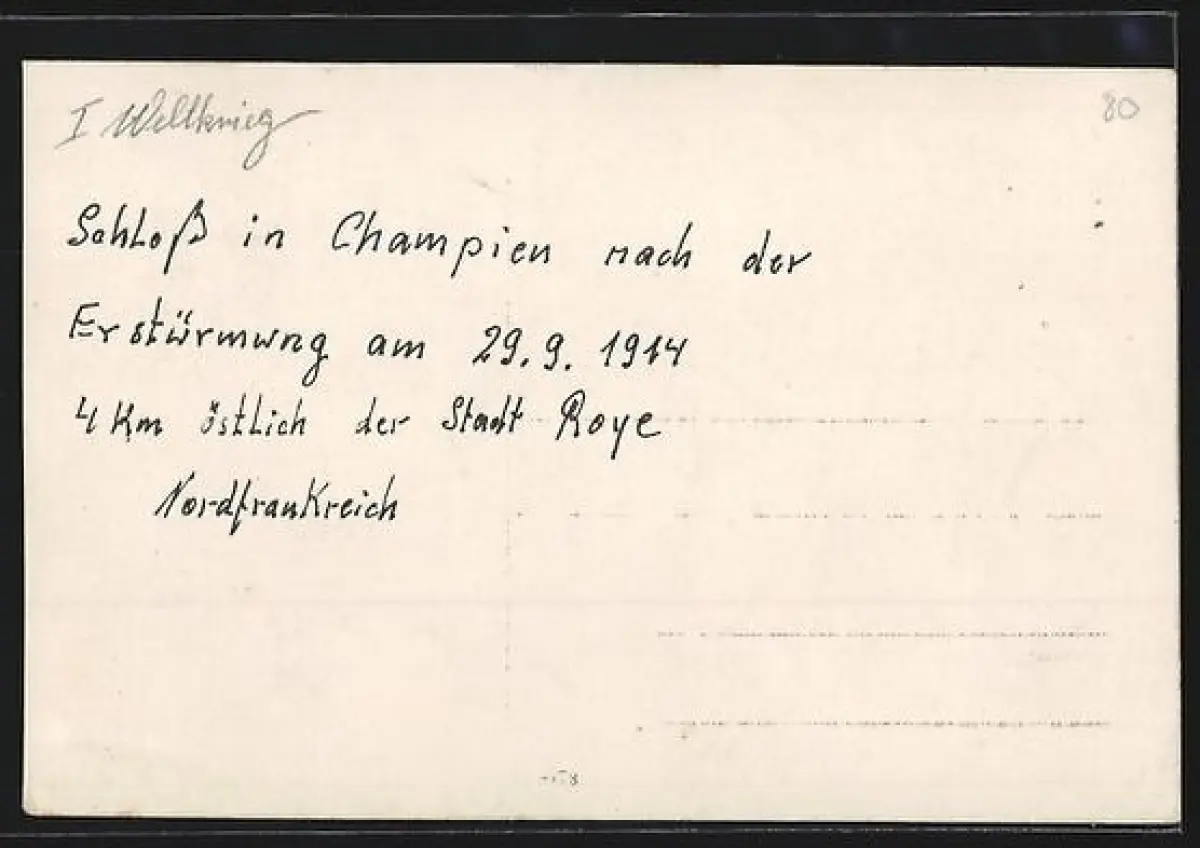 I Weltkrieg
80
Schloß in Champien nach der
Erstürmung am 29.9.1914
4 Km östlich der Stadt Roye
Nordfrankreich